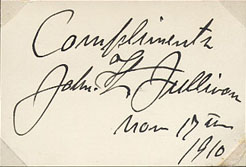 Compliments
John L Sullivan
Nov 17th
1910